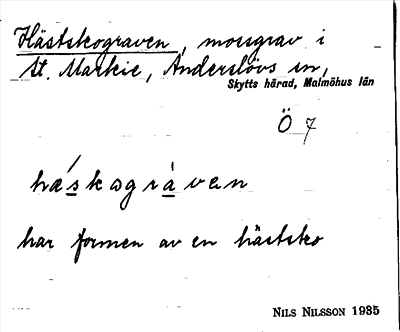 Hästskograven, mossgrav i
St. Markie, Anderslövs sn,
Skytts härad, Malmöhus län
Ö 7
hæskograven
har formen av en hästsko
NILS NILSSON 1935